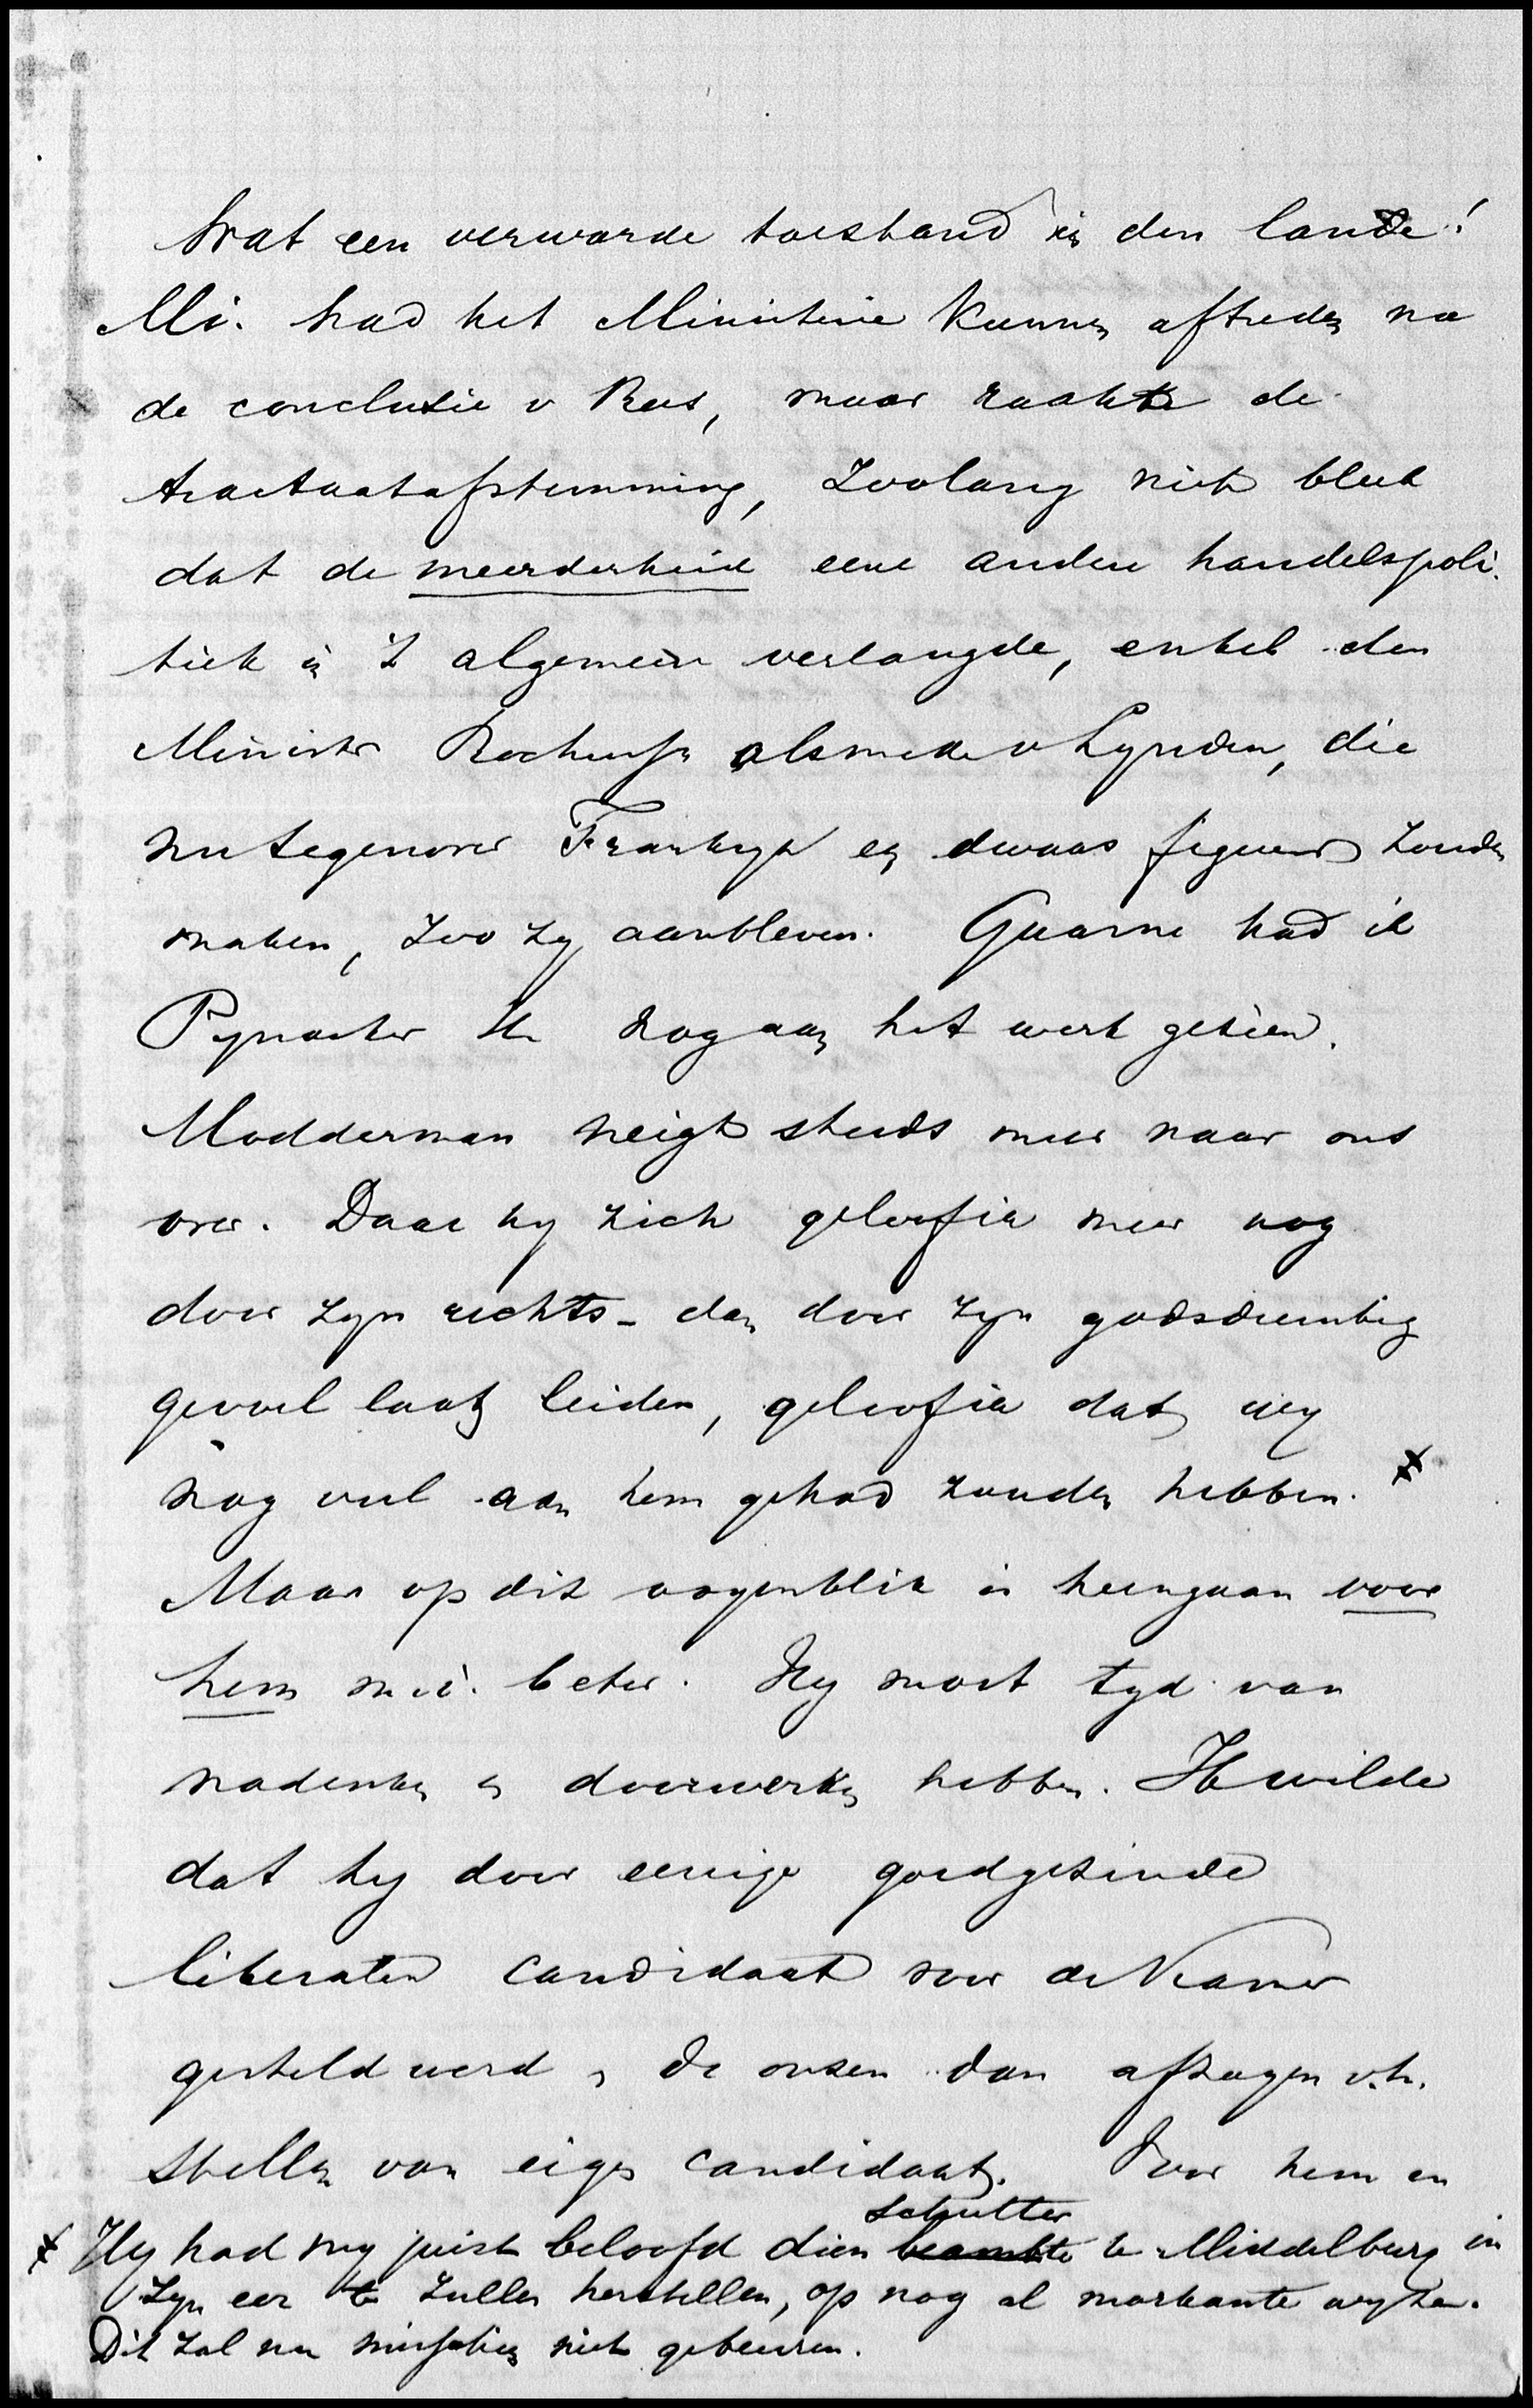 Wat een verwarde toestand in den lande!
M.i. had het Ministerie kunnen aftreden na
de conclusie v Rees, maar raakte de
tractaatafstemming, zoolang niet bleek
dat de meerderheid eene andere handelspoli-
tiek in 't algemeen verlangde, enkel den
Minister Rochussen alsmede v Lynden, die
nu tegenover Frankryk een dwaas figuur zouden
maken, zoo zy aanbleven. Gaarne had ik
Pynacker H. nog aan het werk gezien.
Modderman neigt steeds meer naar ons
over. Daar hy zich geloof ik meer nog
door zyn rechts- dan door zyn godsdienstig
gevoel laat leiden, geloof ik dat wy
nog veel aan hem gehad zouden hebben. ⨯
Maar op dit oogenblik is heengaan voor
hem m.i. beter. Hy moet tyd van
nadenken en doorwerken hebben. Ik wilde
dat hy door eenige goedgezinde
liberalen candidaat voor de Kamer
gesteld werd en de onzen dan afzagen v.h.
stellen van eigen candidaat. Voor hem en
schutter
⨯ Hy had my juist beloofd dien beambte te Middelburg in
zyn eer te zullen herstellen, op nog al markante wyze.
Dit zal nu misschien niet gebeuren.